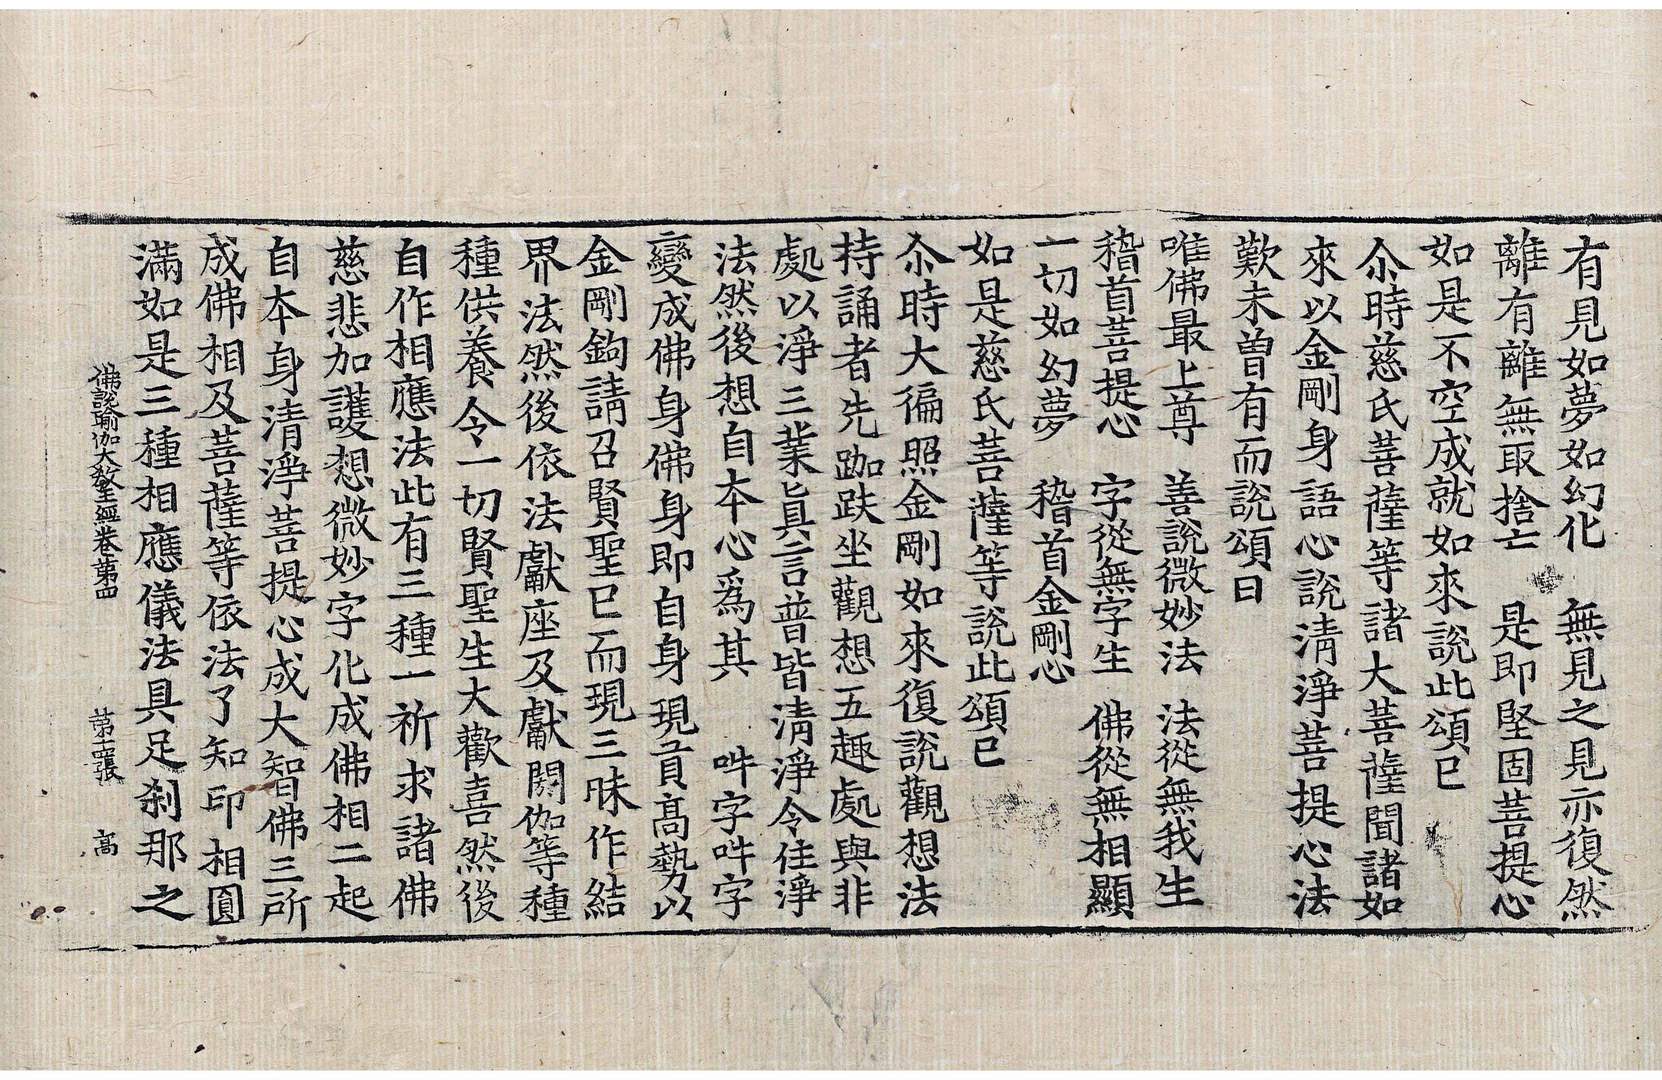 有見如夢如幻化　無見之見亦復然
離有離無取捨亡　是即堅固菩提心
如是不空成就如來說此頌已
尒時慈氏菩薩等諸大菩薩聞諸如
來以金剛身語心說清淨菩提心法
歎未曾有而說頌曰
唯佛最上尊　善說微妙法　法從無我生
稽首菩提心　字從無字生　佛從無相顯
一切如幻夢　稽首金剛心
如是慈氏菩薩等說此頌已
尒時大徧照金剛如來復說觀想法
持誦者先跏趺坐觀想五趣處與非
處以淨三業真言普皆清淨令住淨
法然後想自本心爲其　吽字吽字
變成佛身佛身即自身現頁高勢以
金剛鉤請召賢聖已而現三昧作結
界法然後依法獻座及獻閼伽等種
種供養令一切賢聖生大歡喜然後
自作相應法此有三種一祈求諸佛
慈悲加護想微妙字化成佛相二起
自本身清淨菩提心成大智佛三所
成佛相及菩薩等依法了知印相圓
滿如是三種相應儀法具足剎那之
佛說瑜伽大教王經卷第四　第十二張　高